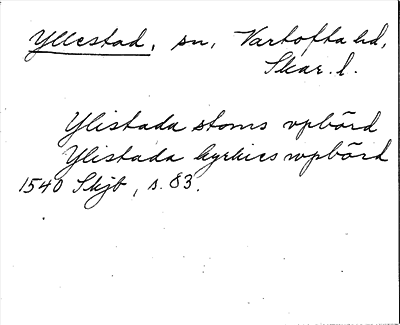 Yllestad, sn, Vartofta hd,
Skar. l.
Ylistada stoms vpbörd
Ylistada kyrkies wpbörd
1540 Skjb, s. 83.